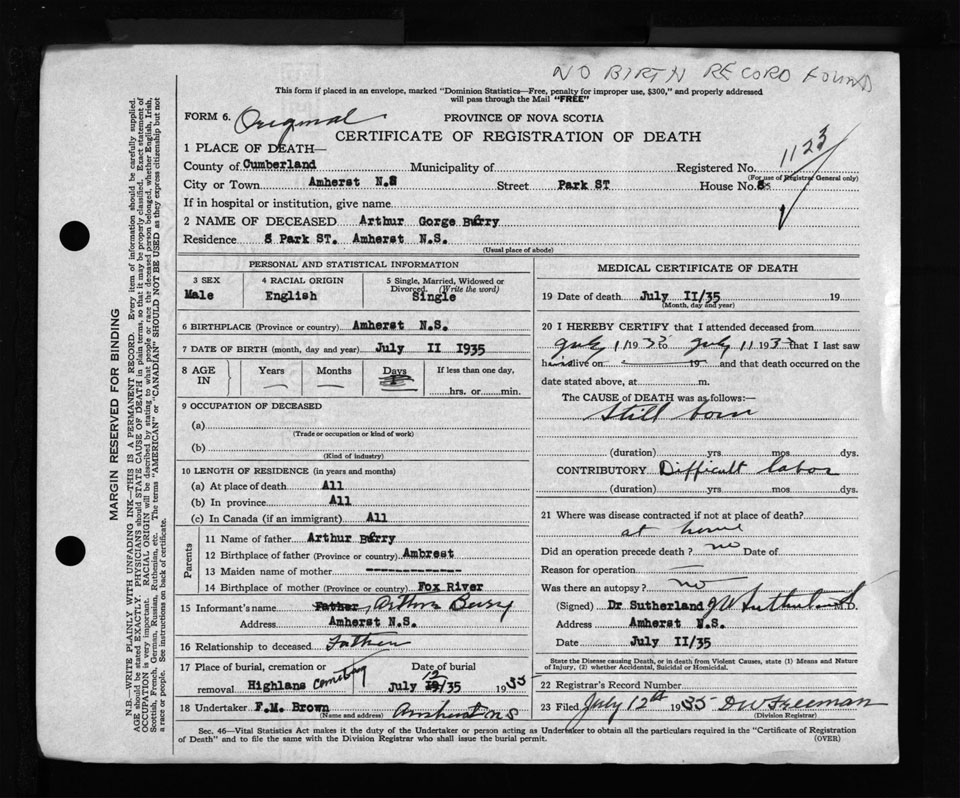 NO BIRTH RECORD FOUND
This form if placed in an envelope, marked "Dominion Statistics—Free, penalty for improper use, $300," and properly addressed
will pass through the Mail "FREE"
FORM 6. Original PROVINCE OF NOVA SCOTIA
CERTIFICATE OF REGISTRATION OF DEATH
1 PLACE OF DEATH—
County of Cumberland Municipality of Registered No. 1123
(For use of Registrar General only)
City or Town Amherst N.S Street Park ST House No.
If in hospital or institution, give name
2 NAME OF DECEASED Arthur Gorge
Residence Park ST. Amherst N.S.
(Usual place of abode)
PERSONAL AND STATISTICAL INFORMATION
3 SEX
Male
4 RACIAL ORIGIN
English
5 Single, Married, Widowed or
Divorced. (Write the word)
Single
6 BIRTHPLACE (Province or country) Amherst N.S.
7 DATE OF BIRTH (month, day and year) July II I935
8 AGE IN
Years Months Days If less than one day,
hrs. or min.
9 OCCUPATION OF DECEASED
(a)
(Trade or occupation or kind of work)
(b)
(Kind of industry)
10 LENGTH OF RESIDENCE (in years and months)
(a) At place of death All
(b) In province All
(c) In Canada (if an immigrant) All
Parents
11 Name of father Arthur
12 Birthplace of father (Province or country) Ambrest
13 Maiden name of mother --------------
14 Birthplace of mother (Province or country) Fox River
15 Informant's name Father, Arthur
Address Amherst N.S.
16 Relationship to deceased Father
17 Place of burial, cremation or
removal Highlans
Date of burial
July 12 /35 1935
18 Undertaker F.M. Brown Amherst N S
(Name and address)
MEDICAL CERTIFICATE OF DEATH
19 Date of death July II/35 19
(Month, day and year)
20 I HEREBY CERTIFY that I attended deceased from
July 11 1935 to July 11 1935 that I last saw
h alive on 19 and that death occurred on the
date stated above, at m.
The CAUSE of DEATH was as follows:—
Still born
(duration) yrs mos dys.
CONTRIBUTORY Difficult labor
(duration) yrs mos dys.
21 Where was disease contracted if not at place of death?
at home
Did an operation precede death? no Date of
Reason for operation
Was there an autopsy? no
(Signed) Dr Sutherland J W Sutherland M.D.
Address Amherst N.S.
Date July II/35
State the Disease causing Death, or in death from Violent Causes, state (1) Means and Nature
of Injury, (2) whether Accidental, Suicidal or Homicidal.
22 Registrar's Record Number
23 Filed July 12th 1935 D W Freeman
(Division Registrar)
Sec. 46—Vital Statistics Act makes it the duty of the Undertaker or person acting as Undertaker to obtain all the particulars required in the "Certificate of Registration
of Death" and to file the same with the Division Registrar who shall issue the burial permit. (OVER)
MARGIN RESERVED FOR BINDING
N.B.—WRITE PLAINLY WITH UNFADING INK—THIS IS A PERMANENT RECORD. Every item of information should be carefully supplied.
AGE should be stated EXACTLY. PHYSICIANS should STATE CAUSE OF DEATH in plain terms, so that it may be properly classified. Exact statement of
OCCUPATION is very important. RACIAL ORIGIN will be described by stating to what people or race the deceased person belonged, whether English, Irish,
Scottish, French, German, Russian, Ruthenian, etc. The terms "AMERICAN" or "CANADIAN" SHOULD NOT BE USED as they express citizenship but not
a race or people. See instructions on back of certificate.